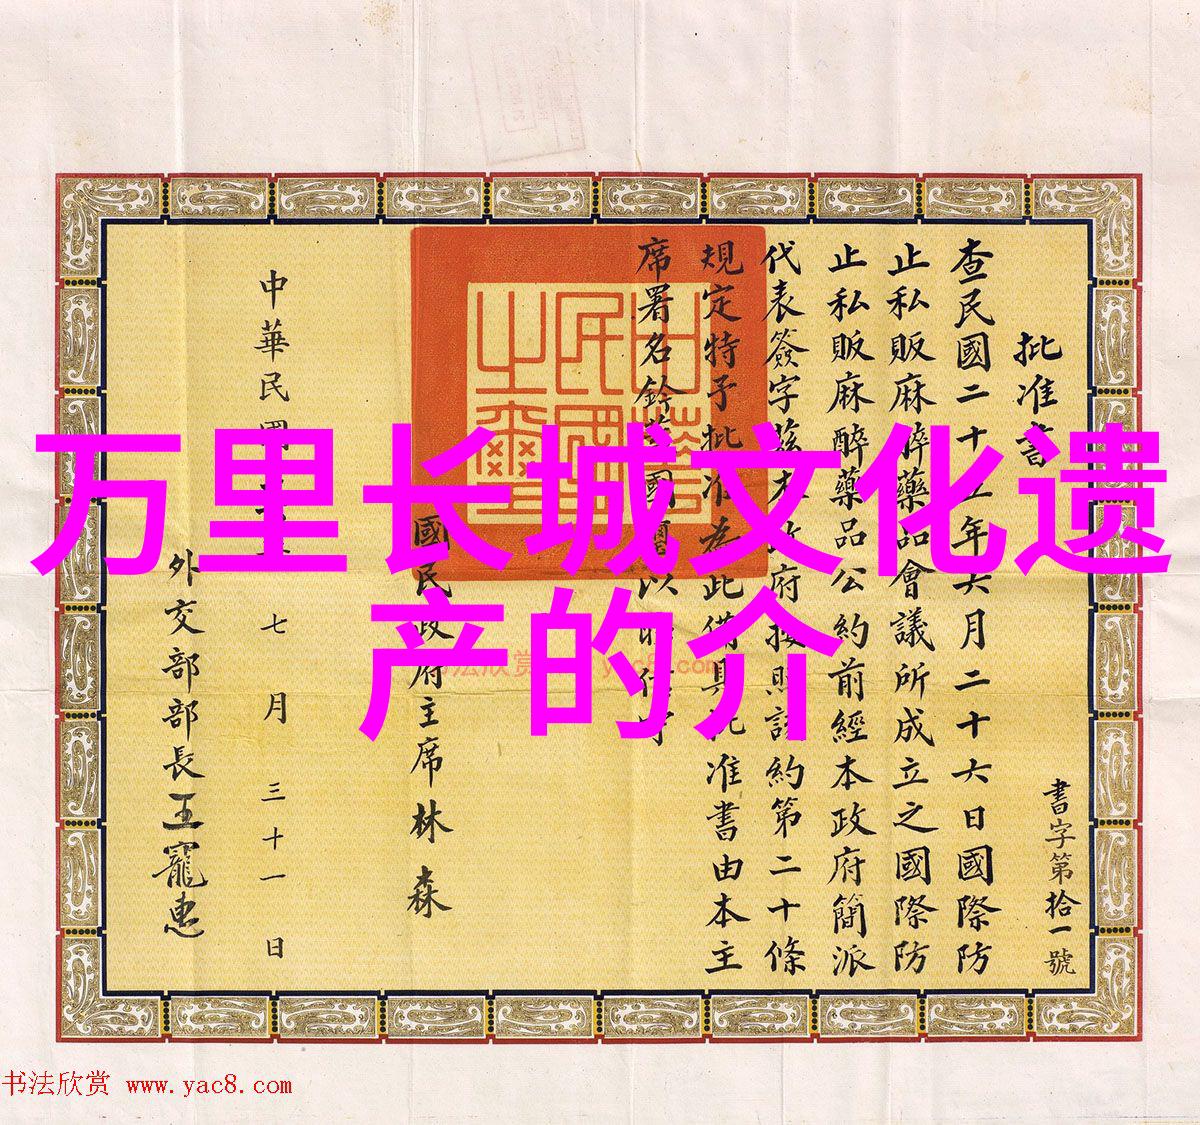 万里长城文化遗
产的介
批准書
書字第拾一號
查民國二十五年六月二十六日國際防
止私販麻醉藥品會議所成立之國際防
止私販麻醉藥品公約前經本政府簡派
代表簽字茲本政府按照該約第二十條
規定特予批准為此備具批准書由本主
席署名鈐蓋國璽以昭信守
國民政府主席林森
中華民國
七月三十一日
外交部部長王寵惠
中華民國之璽
书法欣赏 www.yac8.com